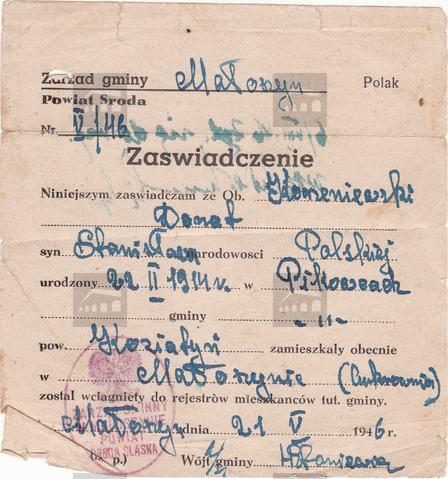 Zarząd gminy Małoszyn Polak
Powiat Sroda
Nr. V/46
Zaswiadczenie
Niniejszym zaswiadczam ze Ob.
Donat
syn Stanisława narodowosci Polskiej
urodzony 22 II 1914 r. w Pikowcach
gminy -"-
pow. Koziatyń zamieszkały obecnie
w Małoszynie (Cukrownia)
został wciagniety do rejestrów mieszkanców tut. gminy.
Małoszyn dnia 21 V 1946 r.
POWIAT
SRODA SLASKA
p.) Wójt gminy